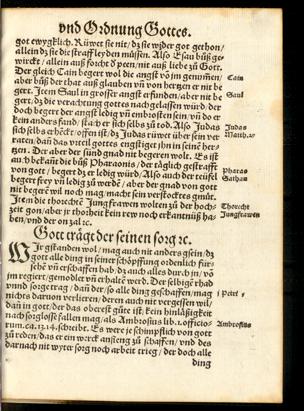 vnd Ordnung Gottes.
got ewyglich. Rüwet sie nit / dz sie wider got gethon /
allein dz sie die straff leyden müssen. Also Esau büß ge-
wirckt / allein auß forcht d' peen / nit auß liebe zů Gott.
Der gleich Cain begert wol die angst võ jm genum̃en /
Cain
aber büß der that auß glauben võ von hertzen er nit be
gert. Item Saul in grosser angst erfunden / aber nit be
Saul
gert / dz die verachtung gottes nachgelassen würd / der
doch begert der angst ledig võ embrosten sein / võ do er
kein anders fand / stach er sich selbs zů tod. Also Judas
Judas
sich selbs erhöckt / offen ist / dz Judas rüwet über sein ver
Matth.
raten / dañ das vrteil gottes engstiget jhn in seinē her-
tzen. Der aber der sünd gnad nit begeren wolt. Es ist
auch bekañt die büß Pharaonis / der täglich gestrafft
von got / begert dz er ledig würd / Also auch der teüfel
Pharao
Sathan
begeret frey võ ledig zů werdē / aber der gnad von got
nit begert / wil noch mag / macht sein verstocktes gmüt.
Item die thorechtē Jungfrawen wolten zů der hoch-
Thorecht
zeit gon / aber jr thorheit kein rew noch erkantnüß ha-
Jungfrawen
ben / vnd der on zal ꝛc.
Gott trägt der seinen sorg ꝛc.
Wir gstanden wol / mag auch nit anders gsein / dz
got alle ding in seiner schöpffung ordenlich für-
jm regiert / gemodlet võ erhalte werd. Der selbig
vnnd sorge trag / dañ der / so alle ding geschaffen / mag
nichts daruon verlieren / deren auch nit vergessen wil /
j Petri
dañ in got / der das oberest gůte ist / kein hinläsigkeit
nach sorglosse fallen mag / als Ambrosius lib. j. officio-
Ambrosius
rum. ca. 13. 14. schreibt. Es were je schimpflich von gott
zů reden / das er ein werck anfieng zů schaffen / vnd des
darnach nit wyter sorg noch arbeit trieg / der doch alle
ding